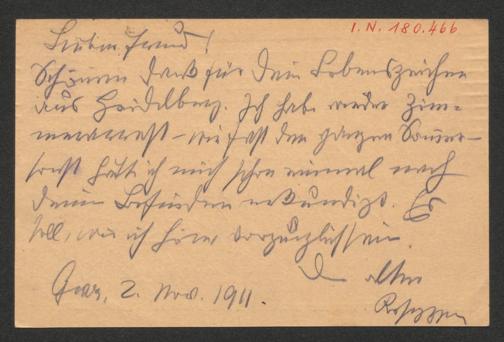 I.N. 180.466
Lieber Freund!
Schönen Dank für Dein Lebenszeichen
aus Heidelberg. Ich habe wieder Zim-
merarrest – wie fast den ganzen Sommer –
sonst hätt ich mich schon einmal nach
Deinem Befinden erkundigt. Es
soll, wie ich höre, vorzüglich sein.
D alter
Graz, 2. Nov. 1911.
Rosegger